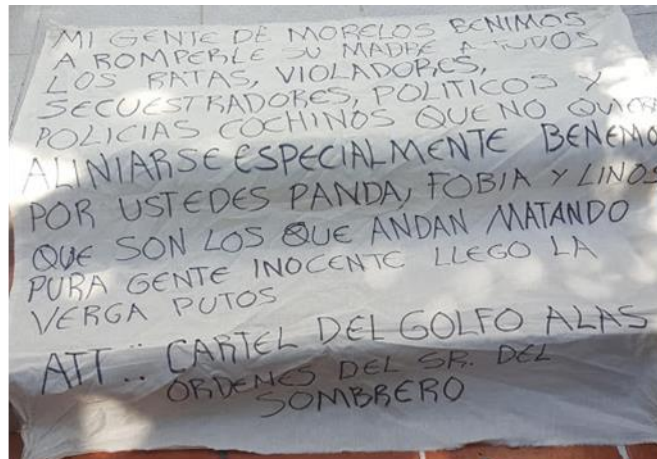 MI GENTE DE MORELOS BENIMOS
A ROMPERLE SU MADRE A TUDOS
LOS RATAS, VIOLADORES,
SECUESTRADORES, POLITICOS Y
POLICIAS COCHINOS QUE NO QUIERA
ALINIARSE ESPECIALMENTE BENEMO
POR USTEDES PANDA, FOBIA Y LINOS
QUE SON LOS QUE ANDAN MATANDO
PURA GENTE INOCENTE LLEGO LA
VERGA PUTOS
ATT.: CARTEL DEL GOLFO ALAS
ÓRDENES DEL SR. DEL
SOMBRERO